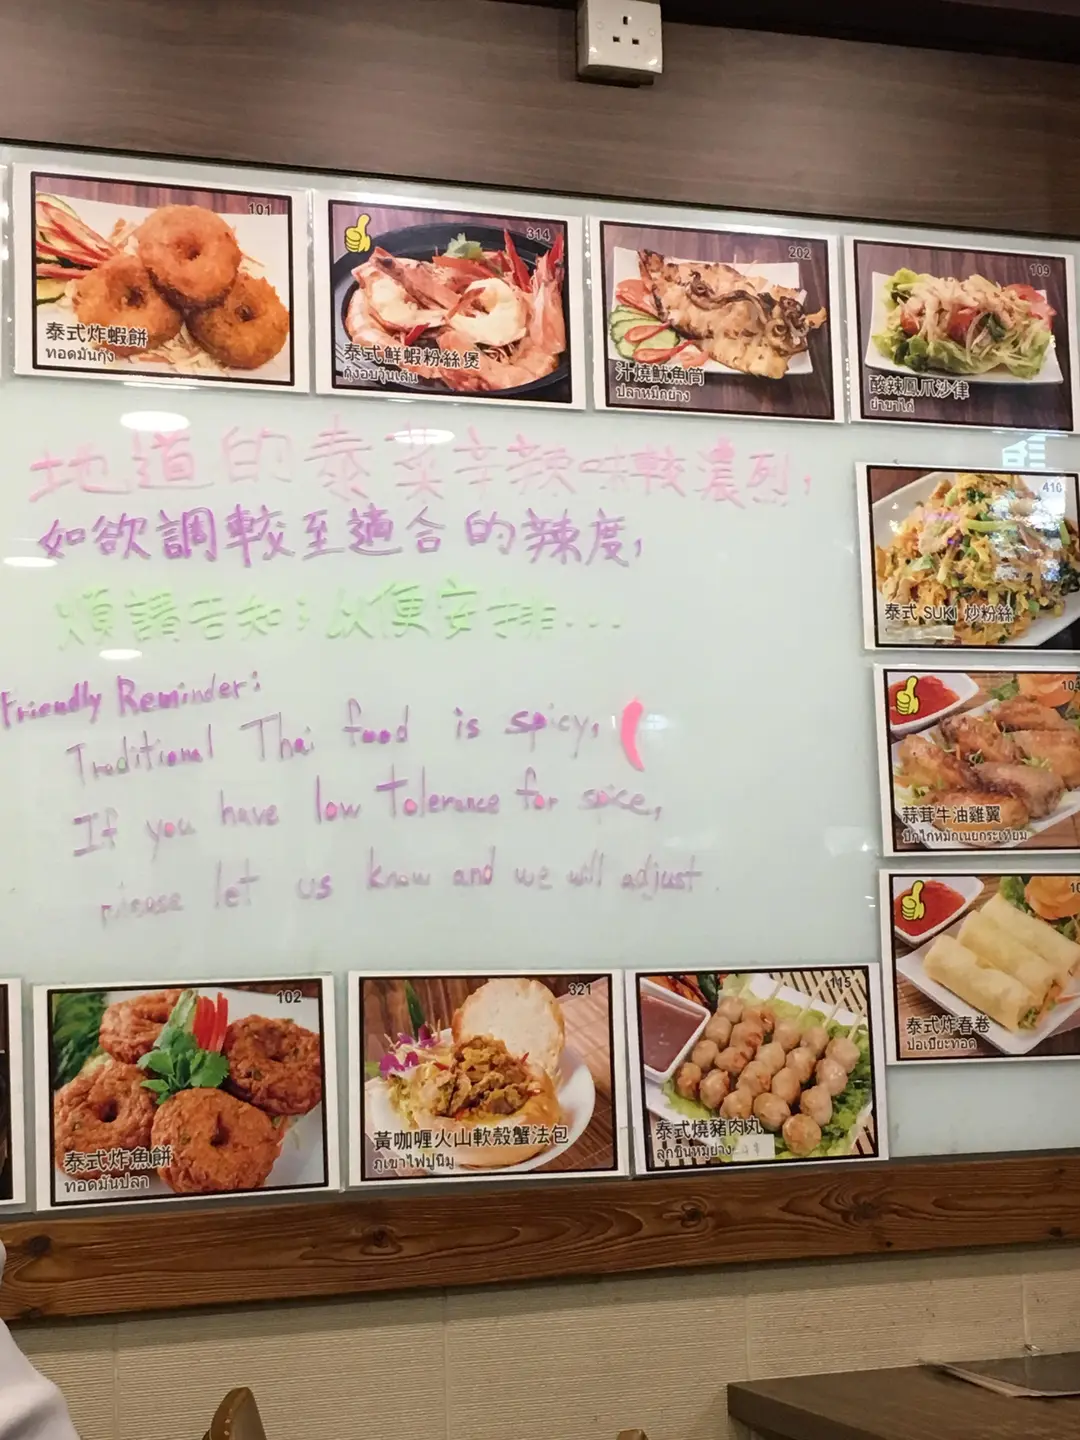 101
泰式炸蝦餅
ทอดมันกุ้ง
314
泰式鮮蝦粉絲煲
กุ้งอบวุ้นเส้น
202
汁燒魷魚筒
ปลาหมึกย่าง
109
酸辣鳳爪沙律
ยำขาไก่
地道的泰菜辛辣味較濃烈，
如欲調較至適合的辣度，
煩請告知；以便安排...
Friendly Reminder:
Traditional Thai food is spicy,
If you have low tolerance for spice,
please let us know and we will adjust.
410
泰式 SUKI 炒粉絲
104
蒜茸牛油雞翼
ปีกไก่หมักเนยกระเทียม
10
泰式炸春卷
ปอเปี๊ยะทอด
102
泰式炸魚餅
ทอดมันปลา
321
黃咖喱火山軟殼蟹法包
ภูเขาไฟปูนิ่ม
115
泰式燒豬肉丸
ลูกชิ้นหมูย่าง